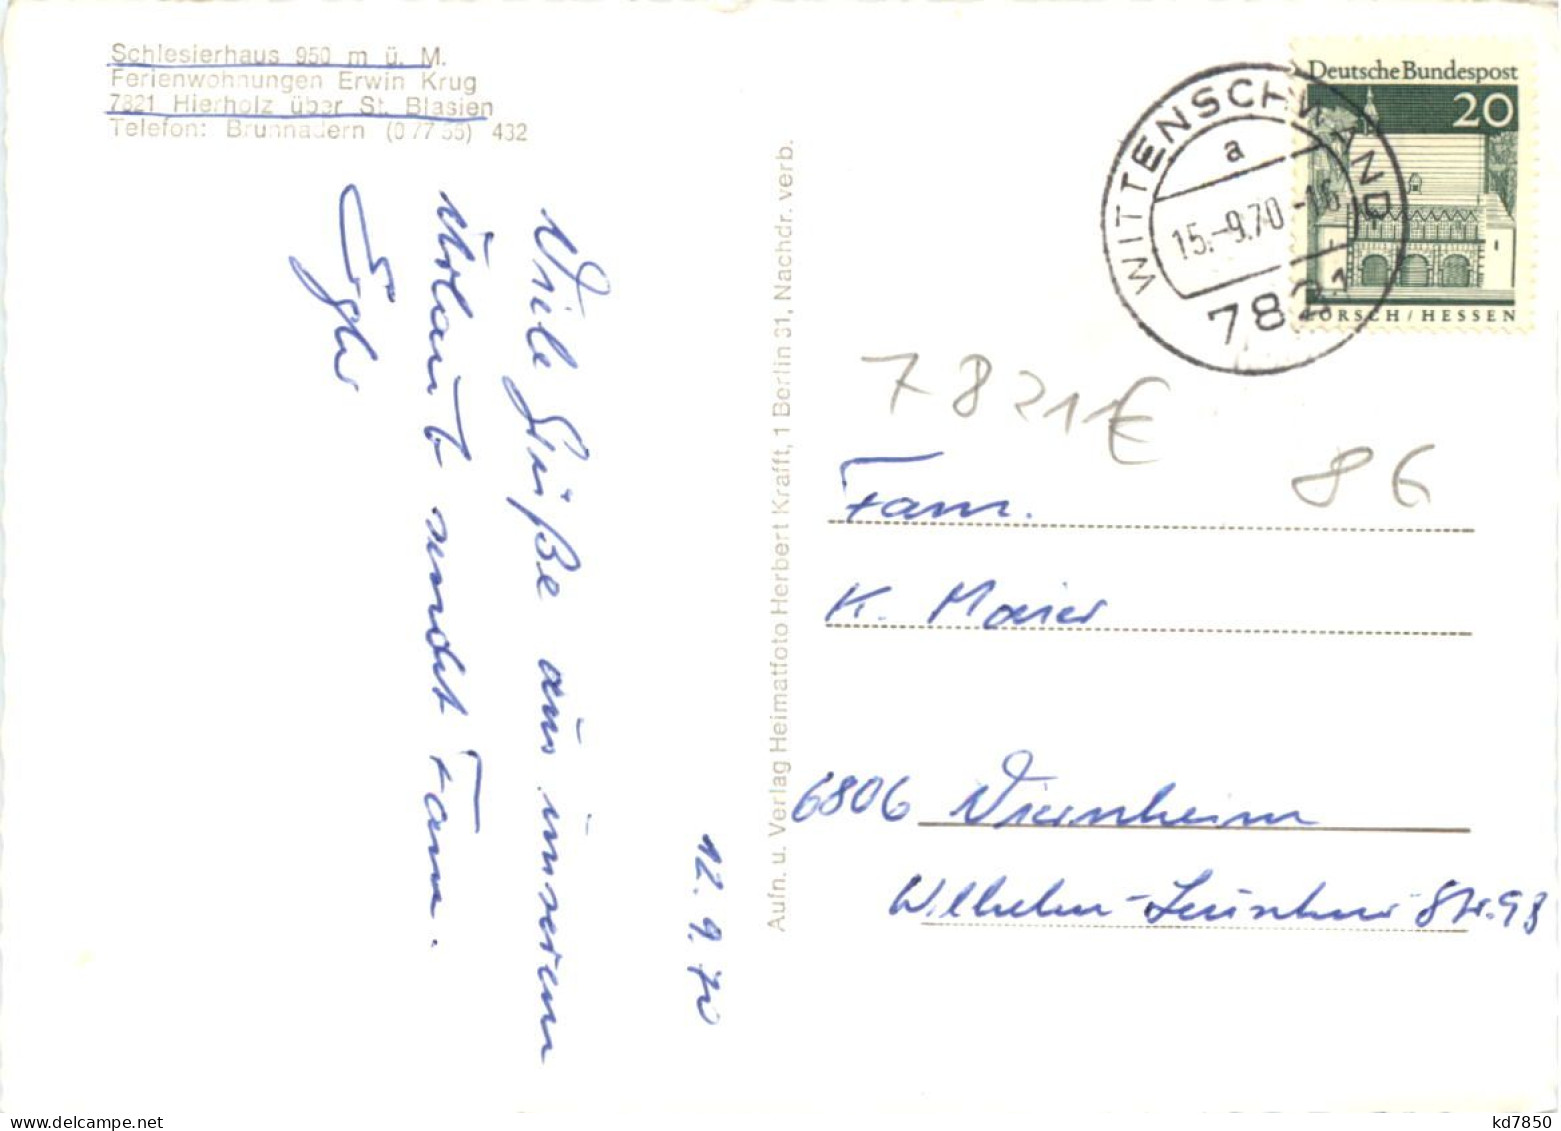 Schlesierhaus 950 m ü. M.
Ferienwohnungen Erwin Krug
7821 Hierholz über St. Blasien
Telefon: Brunnadern (0 77 55) 432
12. 9. 70
Viele Grüße aus unserem
Urlaub sendet Fam.
Aufn. u. Verlag Heimatfoto Herbert Krafft, 1 Berlin 31, Nachdr. verb.
WITTENSCHWAND
a
15.-9.70-16
7821
Deutsche Bundespost
20
LORSCH / HESSEN
7821 1€
86
Fam.
K. Maier
6806 Viernheim
Wilhelm-Leuschner-Str. 93
www.delcampe.net
kd7850